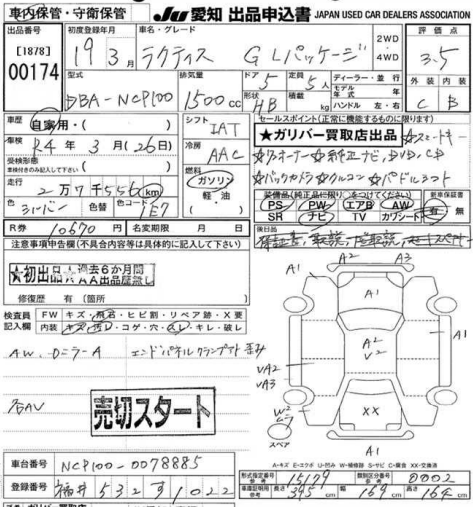 車内保管・守衛保管 JU 愛知 出品申込書 JAPAN USED CAR DEALERS ASSOCIATION
出品番号 初度登録年月 車名・グレード 2WD・4WD 評価点
[1878] 19 3月 ラクティス GLパッケージ 3.5
00174 型式 排気量 ドア 定員 ディーラー・並行 外装 内装
DBA-NCP100 1500cc 5 5人 モデル年式 年
形状 HB 積載 kg ハンドル 左・右 C B
車歴 自家用・( ) シフト IAT セールスポイント(正常に機能するものに限ります)
★ガリバー買取店出品 ☆スマートキー
車検 R4年3月(26日) 冷房 AAC
☆ワンオーナー ☆純正ナビ,DVD,CD
受検形態 車検付きのみ記入して下さい ( ) 燃料 ガソリン
☆バックカメラ ☆クルコン ☆パドルシフト
走行 2万7千556km 軽油
装備品(純正品に限り、○をつけてください) 新車保証書
PS PW エアB AW 有・無
SR ナビ TV カワシート
色 シルバー 色コード 1E7 ( )
R券 10670円 名変期限 月 日
後日品
注意事項申告欄(不具合内容等は具体的に記入して下さい)
★初出品★ 過去6か月間AA出品歴無し
修復歴 有(箇所
検査員記入欄 FW キズ・飛石・ヒビ割・リペア跡・X要
内装 キズ・汚レ・コゲ・穴・スレ・キレ・破レ
A.W. ロニラーA エンドパネルクランプアト 歪み
各AU
売切スタート
A1 A2 A3
A1
A1
A2
V2
VA2
VA3
W2
XX
スペア
A1
A-キズ E-エクボ U-凹み W-補修跡 S-サビ C-腐食 XX-交換済
車台番号 NCP100-0078885
型式指定番号 参考 15179 類別区分番号 参考 0002
登録番号 福井 532 す 1022
車庫証明用 参考 長さ 395cm 幅 169cm 高さ 164cm